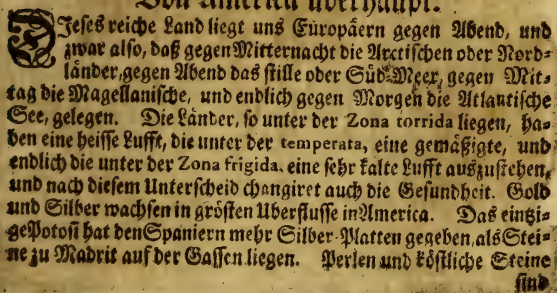 Von America überhaupt.
Dieses reiche Land liegt uns Europäern gegen Abend, und
zwar also, daß gegen Mitternacht die Arctischen oder Nord-
länder, gegen Abend das stille oder Süd-Meer, gegen Mit-
tag die Magellanische, und endlich gegen Morgen die Atlantische
See, gelegen. Die Länder, so unter der Zona torrida liegen, ha-
ben eine heisse Lufft, die unter der temperata, eine gemäßigte, und
endlich die unter der Zona frigida, eine sehr kalte Lufft auszustehen,
und nach diesem Unterscheid changiret auch die Gesundheit. Gold
und Silber wachsen in grösten Uberflusse in America. Das eintzi-
ge Potosi hat den Spaniern mehr Silber-Platten gegeben, als Stei-
ne zu Madrit auf der Gassen liegen. Perlen und köstliche Steine
sind